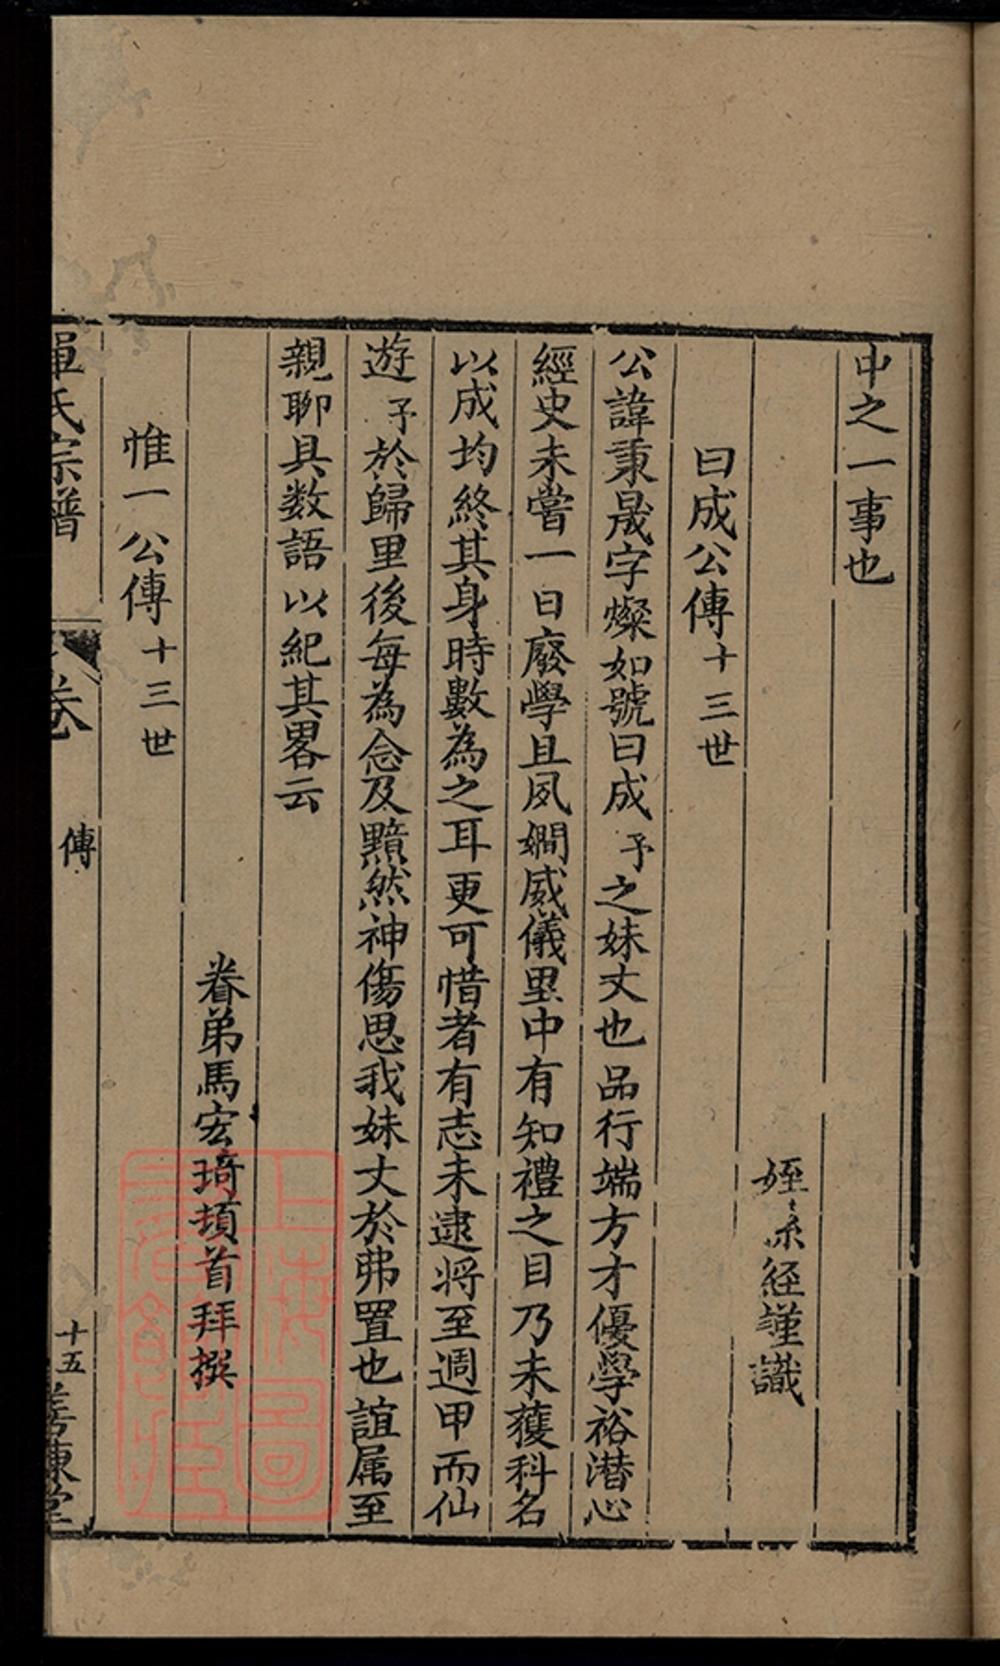 中之一事也
姪系經謹識
曰成公傳十三世
公諱秉晟字燦如號曰成予之妹丈也品行端方才優學裕潜心
經史未嘗一日廢學且夙嫺威儀里中有知禮之目乃未獲科名
以成均終其身時數為之耳更可惜者有志未逮將至週甲而仙
遊予於歸里後每為念及黯然神傷思我妹丈於弗置也誼属至
親聊具数語以紀其畧云
眷弟馬宏琦頓首拜撰
惟一公傳十三世
氏宗譜
卷
傳
十五
善陳堂
上海圖